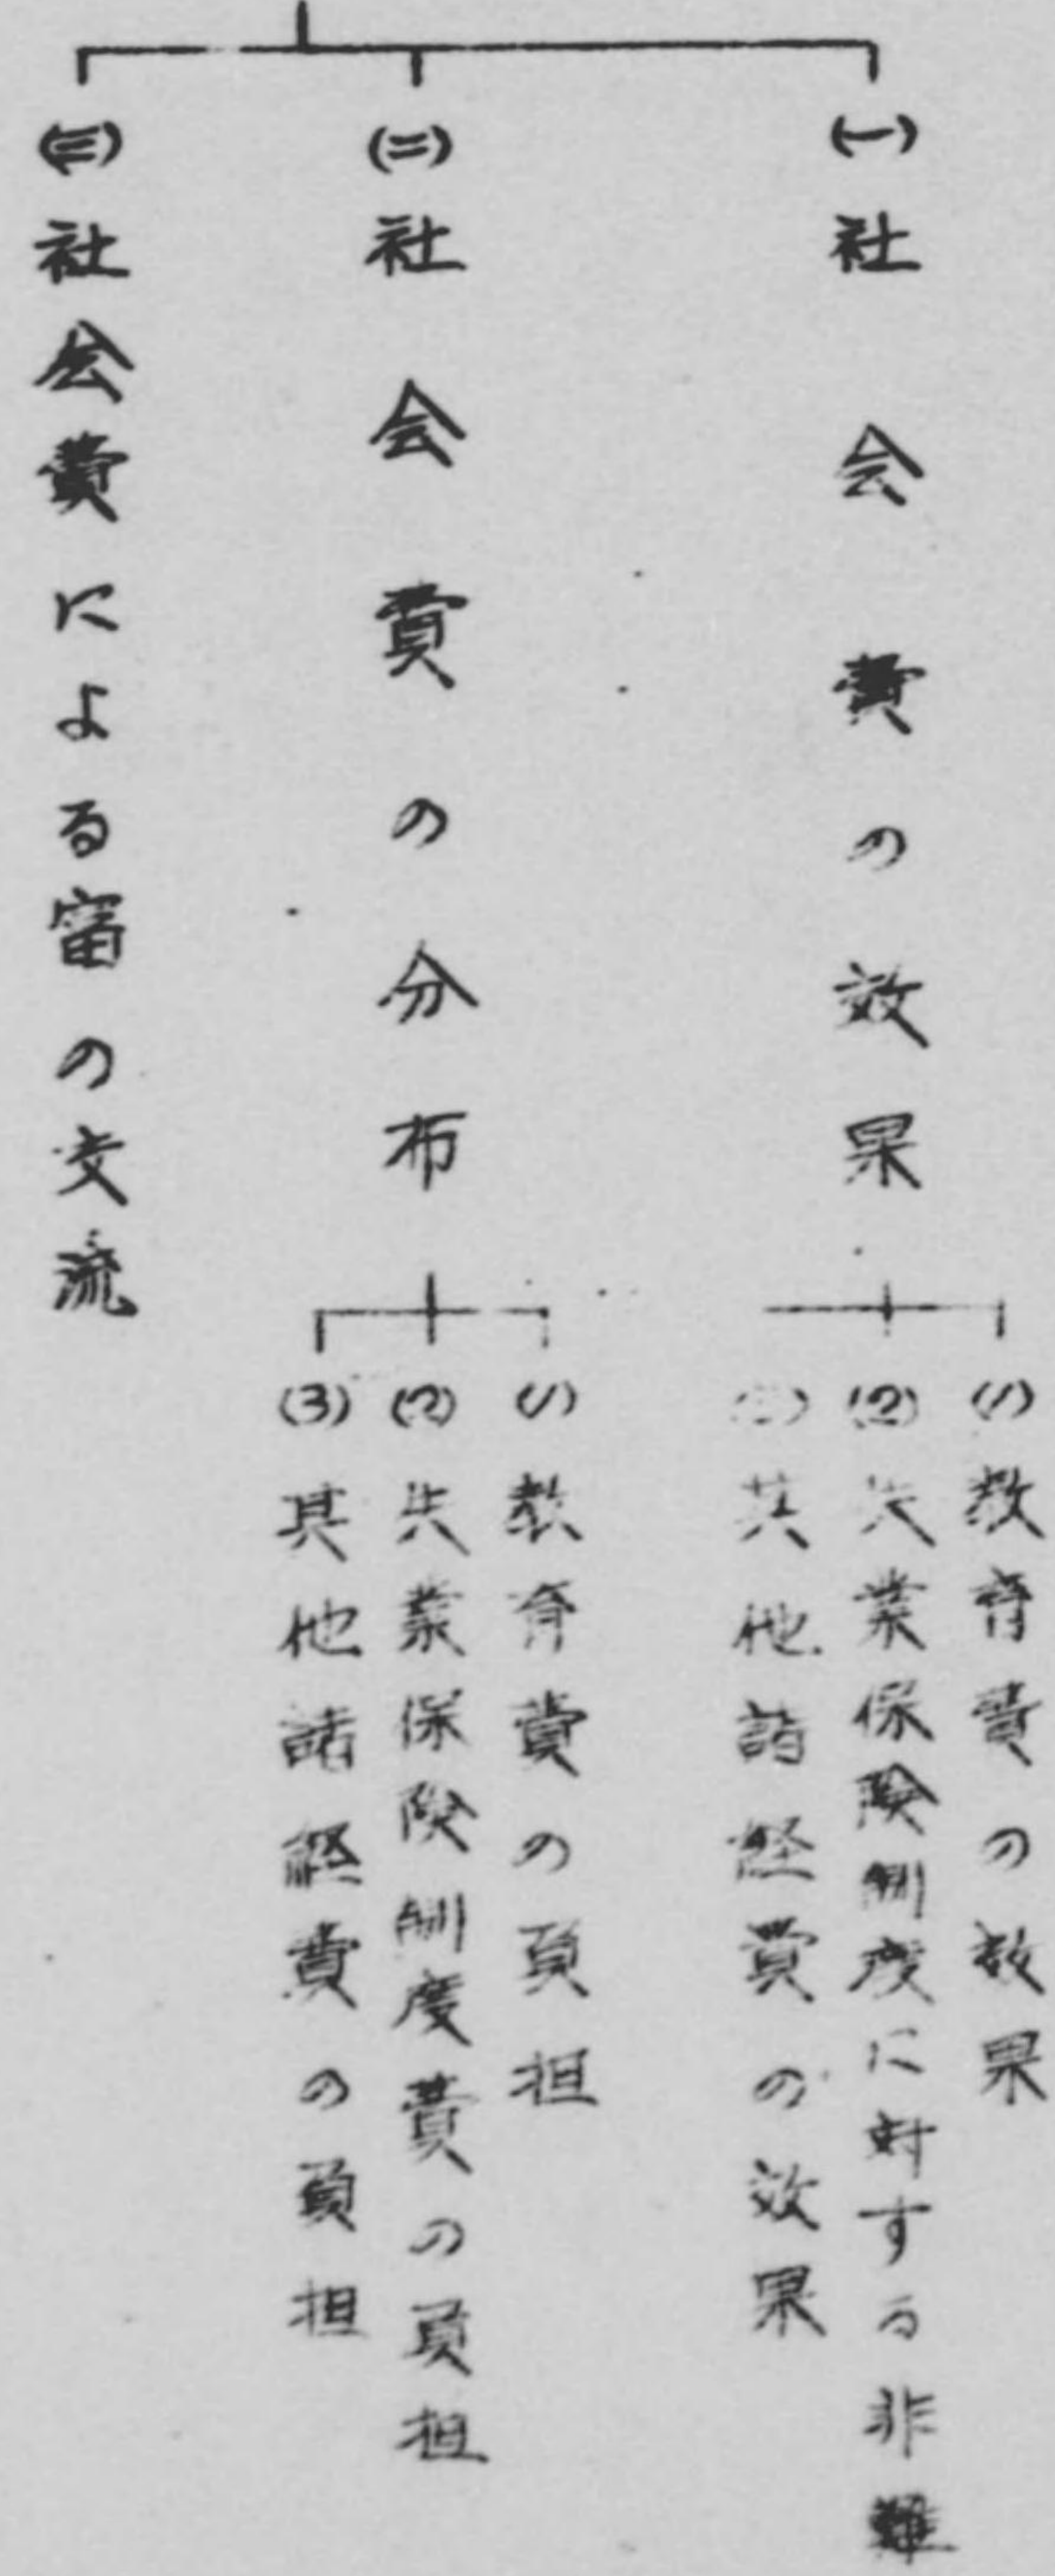 (一)社会費の效果
(1)教育費の效果
(2)失業保険制度に対する非難
其他諸経費の效果
(二)社会費の分布
(1)教育費の負担
(2)失業保険制度費の負担
(3)其他諸経費の負担
(三)社会費による富の交流